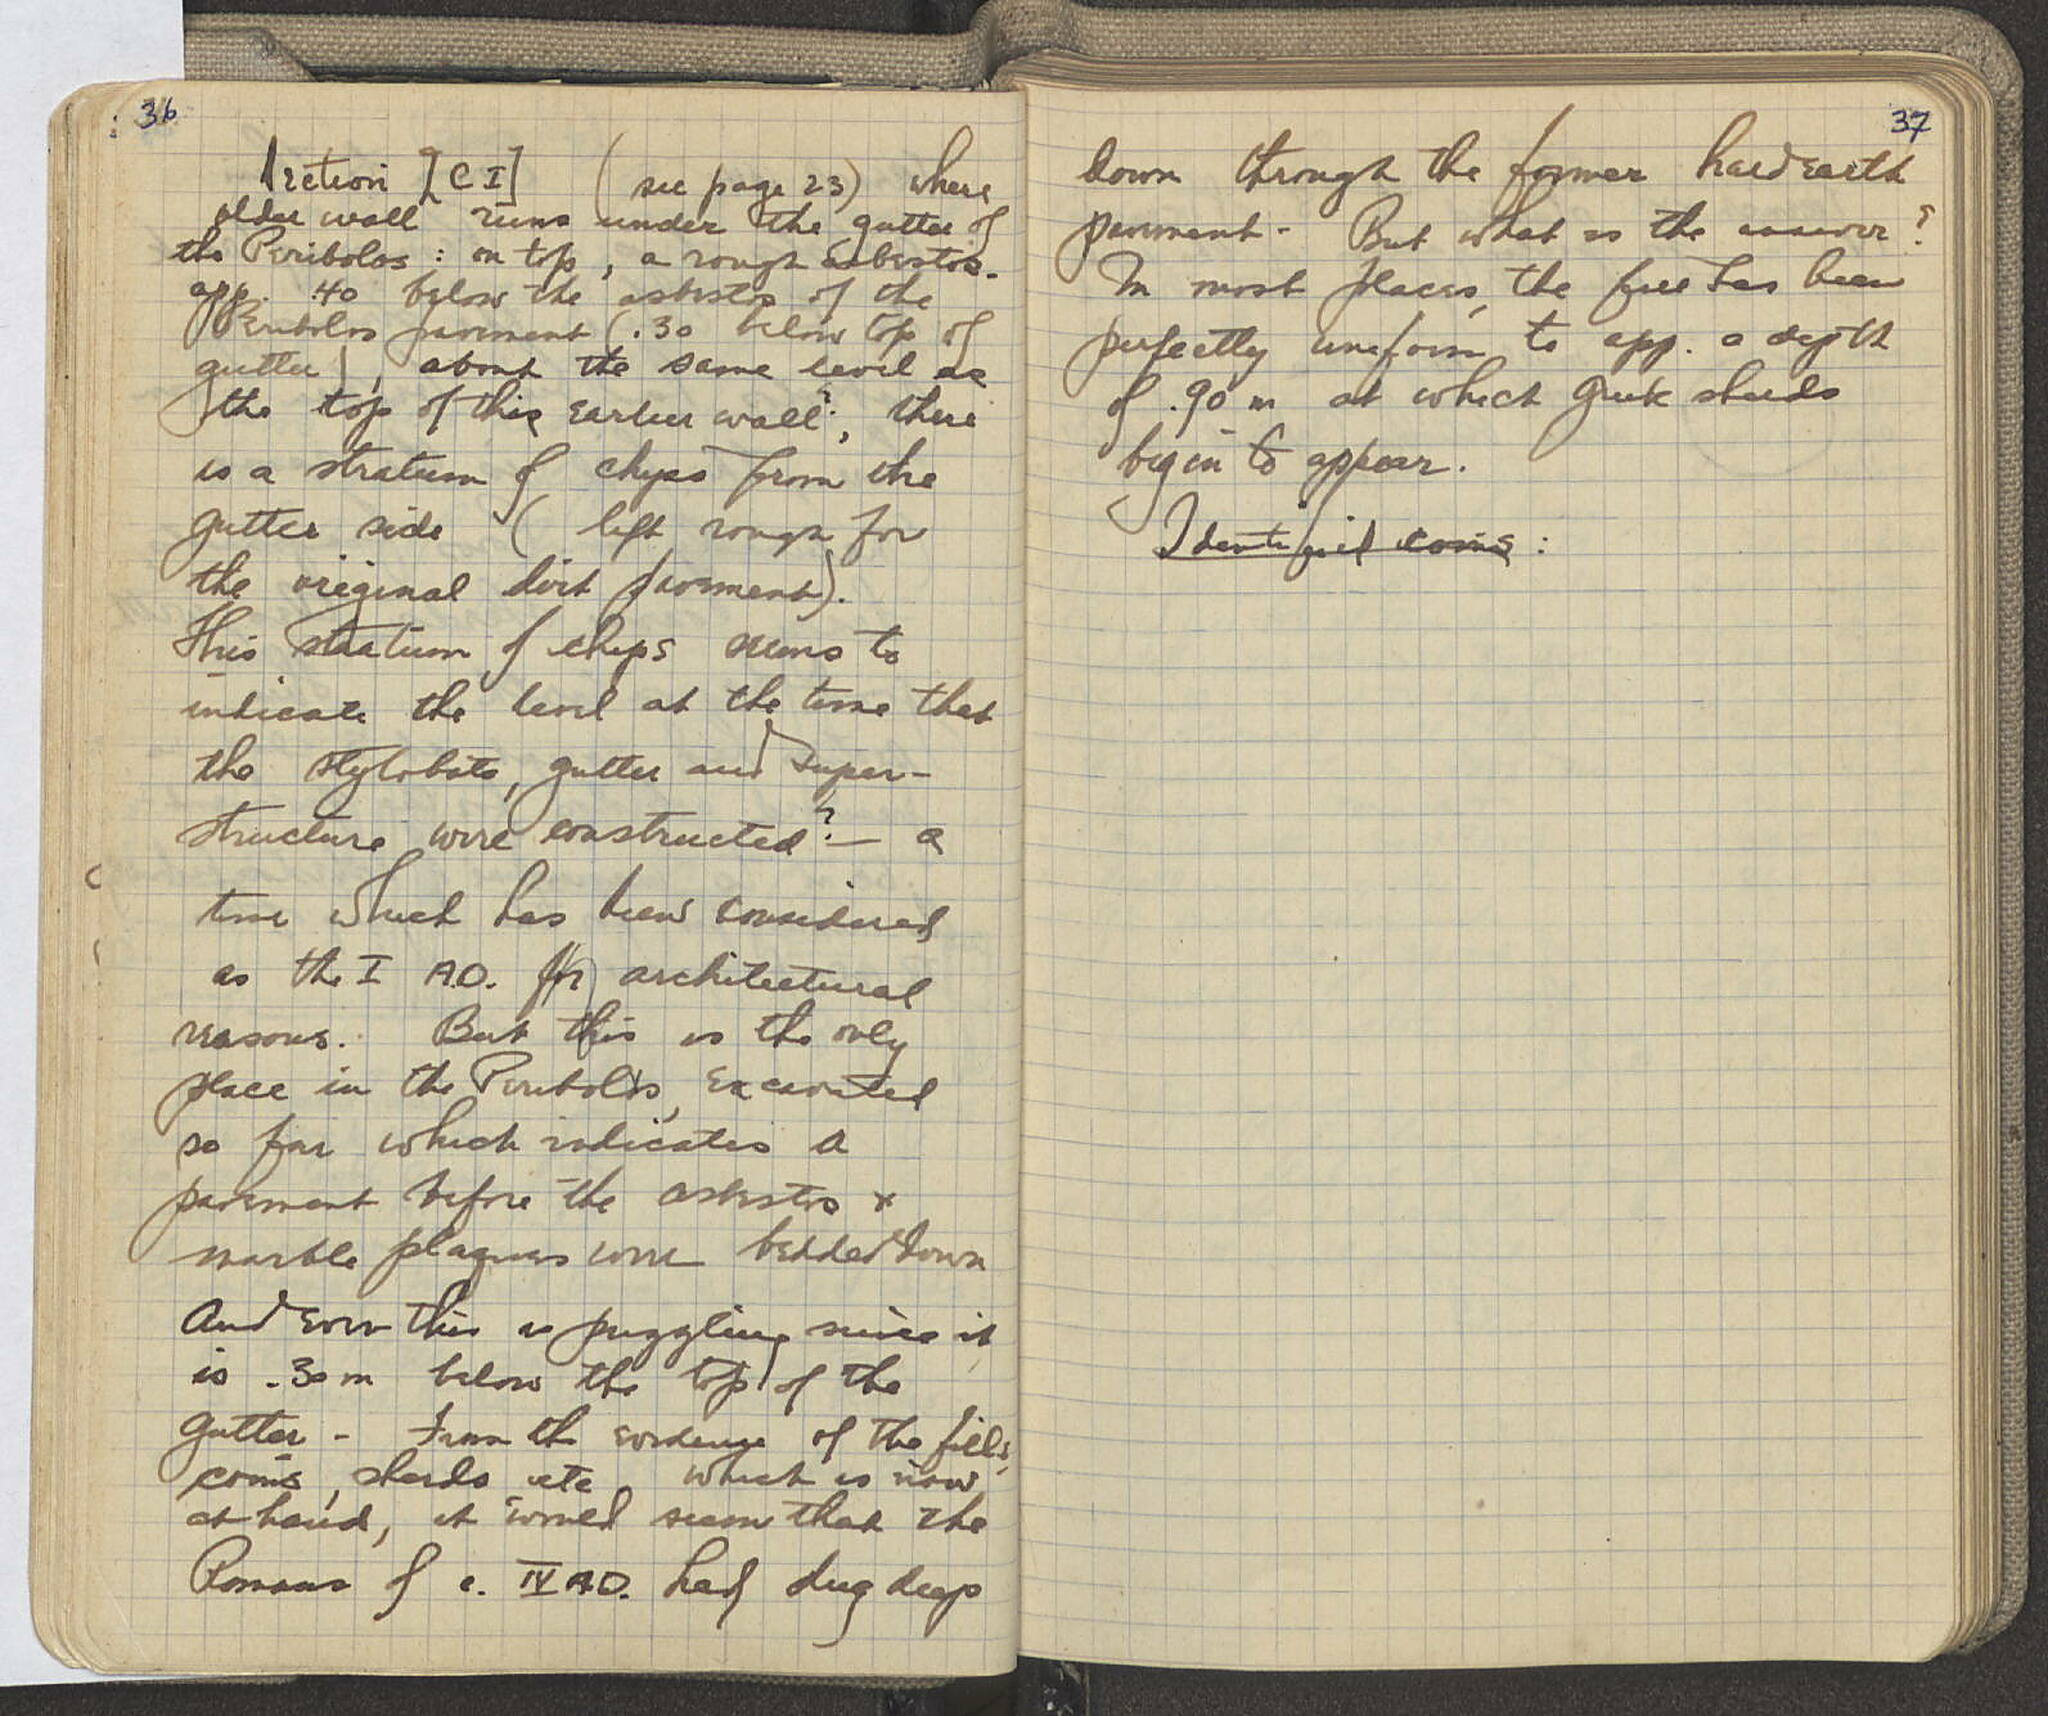 36
Section [C I] (see page 23) where
older wall runs under the gutter of
the Peribolos : on top, a rough asbestos -
app. .40 below the asbestos of the
Peribolos pavement (.30 below top of
gutter), about the same level as
the top of this earlier wall?; there
is a stratum of chips from the
gutter side (left rough for
the original dirt pavement).
This stratum of chips seems to
indicate the level at the time that
the stylobate, gutter and super-
structure were constructed? — a
time which has been considered
as the I A.D. for architectural
reasons. But this is the only
place in the Peribolos, excavated
so far which indicates a
pavement before the asbestos +
marble plaques were bedded down
And even this is puzzling since it
is .30 m below the top of the
gutter - From the evidence of the fills,
coins, sherds etc which is now
at hand, it would seem that the
Romans of c. IV A.D. had dug deep
37
down through the former hard earth
pavement - But what is the answer?
In most places, the fill has been
perfectly uniform to app. a depth
of .90 m at which Greek sherds
begin to appear.
Identified coins :